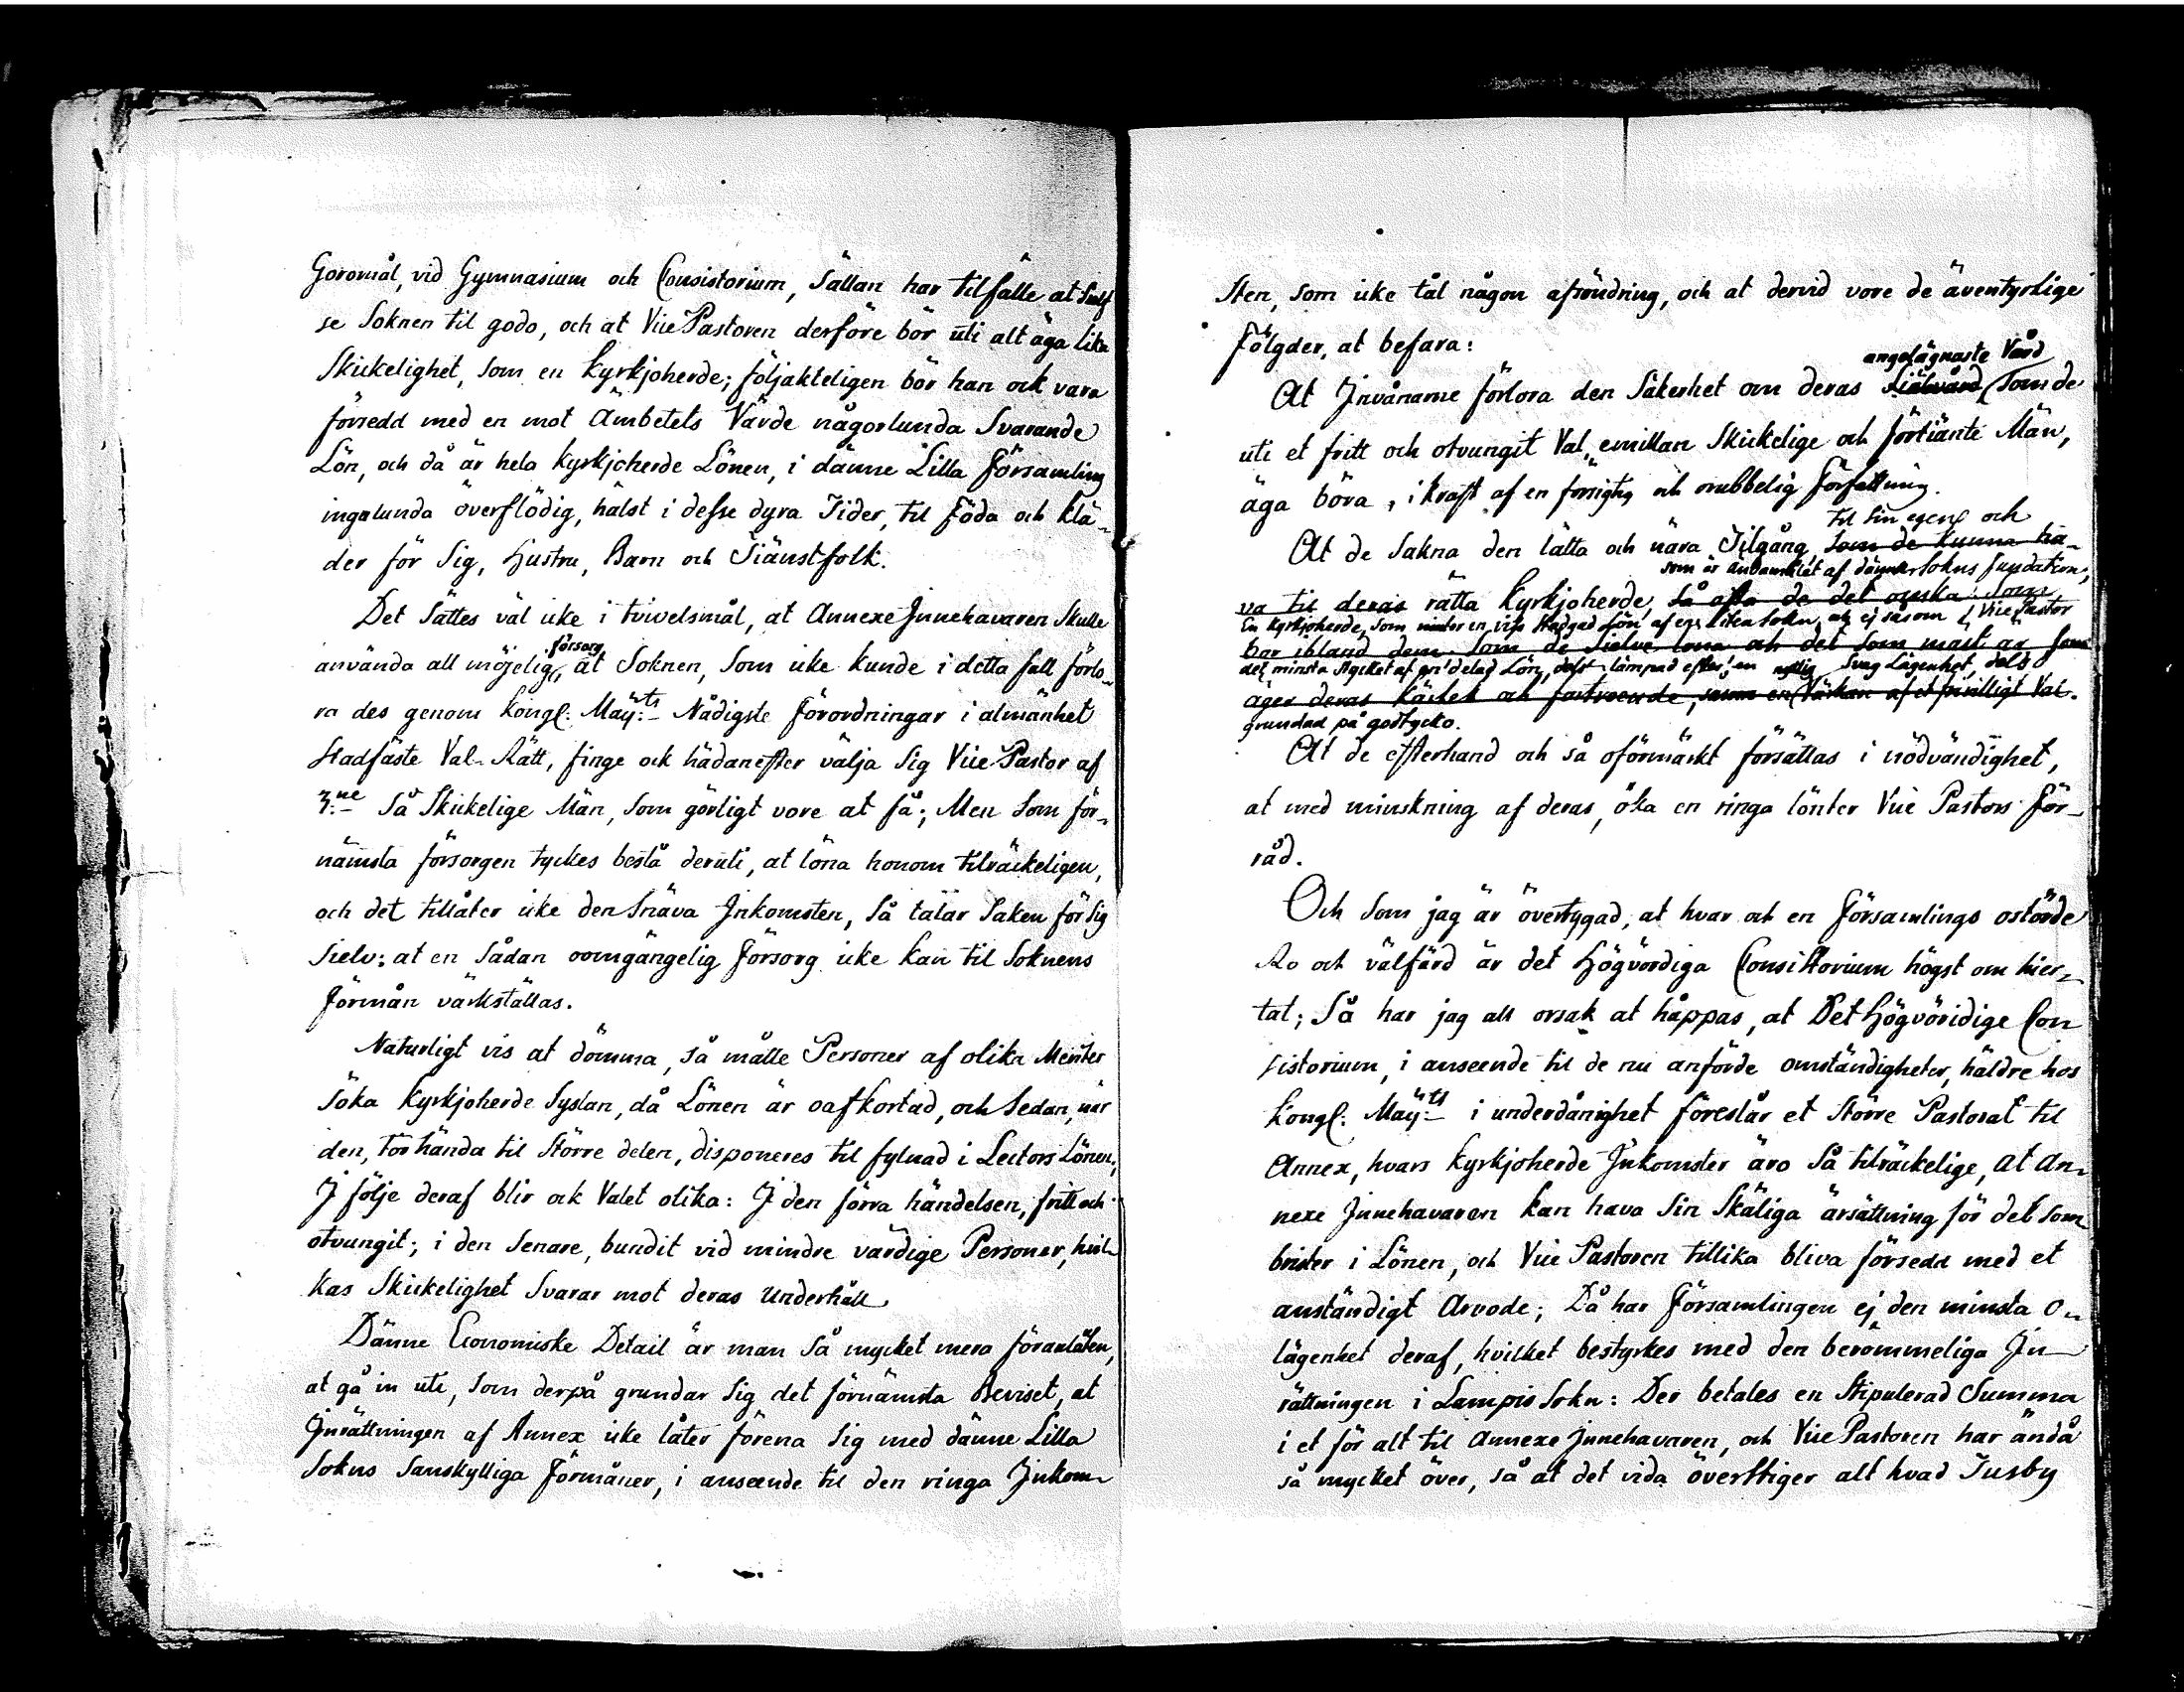 Goromål, vid Gymnasium och Consistorium, Sällan har tilfälle at Sielf
se Soknen til godo, och at Vice Pastoren derföre bör uti alt äga lika
Skickelighet, som en Kyrkjoherde; följakteligen bör han ock vara
försedd med en mot Ämbetets Värde någorlunda Svarande
Lön, och då är hela Kyrkjoherde Lönen, i dänne Lilla Församling
ingalunda överflödig, hälst i desse dyra Tider, til Föda och Klä-
der för Sig, Hustru, Barn och Tiänstfolk.
Det Sättes väl icke i tvivelsmål, at Annexe Innehavaren Skulle
försorg
använda all möjelig, åt Soknen, Som icke kunde i detta fall förlo-
ra des genom Kongl: Maij:ts Nådigste Förordningar i almänhet
Stadfäste Val-Rätt, finge ock hädanefter välja Sig Vice Pastor af
3:ne Så Skickelige Män, Som görligt vore at få; Men Som för-
nämsta försorgen tyckes bestå deruti, at löna honom tilräckeligen,
och det tillåter icke den Snäva Inkomsten, Så talar Saken för Sig
Sielv: at en Sådan oomgängelig Försorg icke kan til Soknens
Förmån värkställas.
Naturligt vis at dömma, så måtte Personer af olika Meriter
Söka Kyrkjoherde Syslan, då Lönen är oafkortad, och Sedan, när
den, tör hända til Större delen, disponeres til fylnad i Lectors Lönen,
I följe deraf blir ock Valet olika: I den förra händelsen, fritt och
otvungit; i den Senare, bundit vid mindre värdige Personer, hvil-
kas Skickelighet Svarar mot deras Underhåll
Dänne Economiske Detail är man Så mycket mera föranlåten,
at gå in uti, Som derpå grundar Sig det förnämsta Beviset, at
Inrättningen af Annex icke låter förena Sig med dänne Lilla
Sokns Sanskylliga Förmåner, i anseende til den ringa Inkom-
Sten, Som icke tål någon afsöndring, och at dervid vore de äventyrlige
Fölgder, at befara:
angelägnaste Vård
At Invånarne förlora den Säkerhet om deras Siälavård, Som de
uti et fritt och otvungit Val, emillan Skickelige och förtiänte Män,
äga böra, i kraft af en försigtig och orubbelig Författning.
til Sin egen och
At de Sakna den lätta och nära Tilgång, Som de kunna ha-
som är ändamålet af dänne Sokns fundation,
va til deras rätta Kyrkjoherde, Så ofta de det önska: Som
En Kyrkjoherde, Som niuter en viss Stadgad Lön af en liten Sokn, och ej såsom Vice Pastor
har ibland dem Som de Sielve löna och det Som mäst är Som
det minsta Stycket af en delad Lön, dels lämpad efter en Svag Lägenhet, dels
äger deras Kärlek och förtroende, såsom en Värkan af et frivilligt Val.
grundad på godtycko.
At de efterhand och så oförmärkt försättas i nödvändighet,
at med minskning af deras, öka en ringa lönter Vice Pastors För-
råd.
Och Som jag är övertygad, at hvar och en Församlings ostörde
Ro och välfärd är det Högvördiga Consistorium högst om hier-
tat; Så har jag all orsak at håppas, at Det Högvöridige Con
sistorium, i anseende til de nu anförde omständigheter, häldre hos
Kongl: Maij:ts i underdånighet föreslår et Större Pastorat til
Annex, hvars Kyrkjoherde Inkomster äro Så tilräckelige, at An-
nexe Innehavaren kan hava Sin Skäliga ärsättning för det Som
brister i Lönen, och Vice Pastoren tillika bliva försedd med et
anständigt Arvode; Då har Församlingen ej den minsta o-
lägenhet deraf, hvilket bestyrkes med den berömmeliga In-
rättningen i Lampis Sokn: Der betales en Stipulerad Summa
i et för alt til Annexe Innehavaren, och Vice Pastoren har ändå
så mycket över, så at det vida överstiger alt hvad Tusby